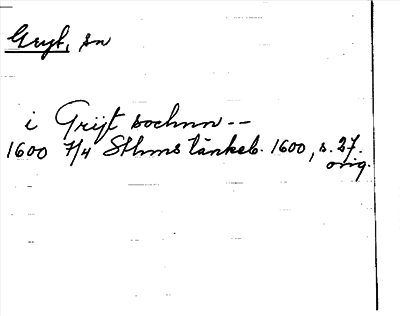 Gryt, sn
i Grijt sochnn --
1600 7/4 Sthms tänkeb. 1600, s. 27.
orig.